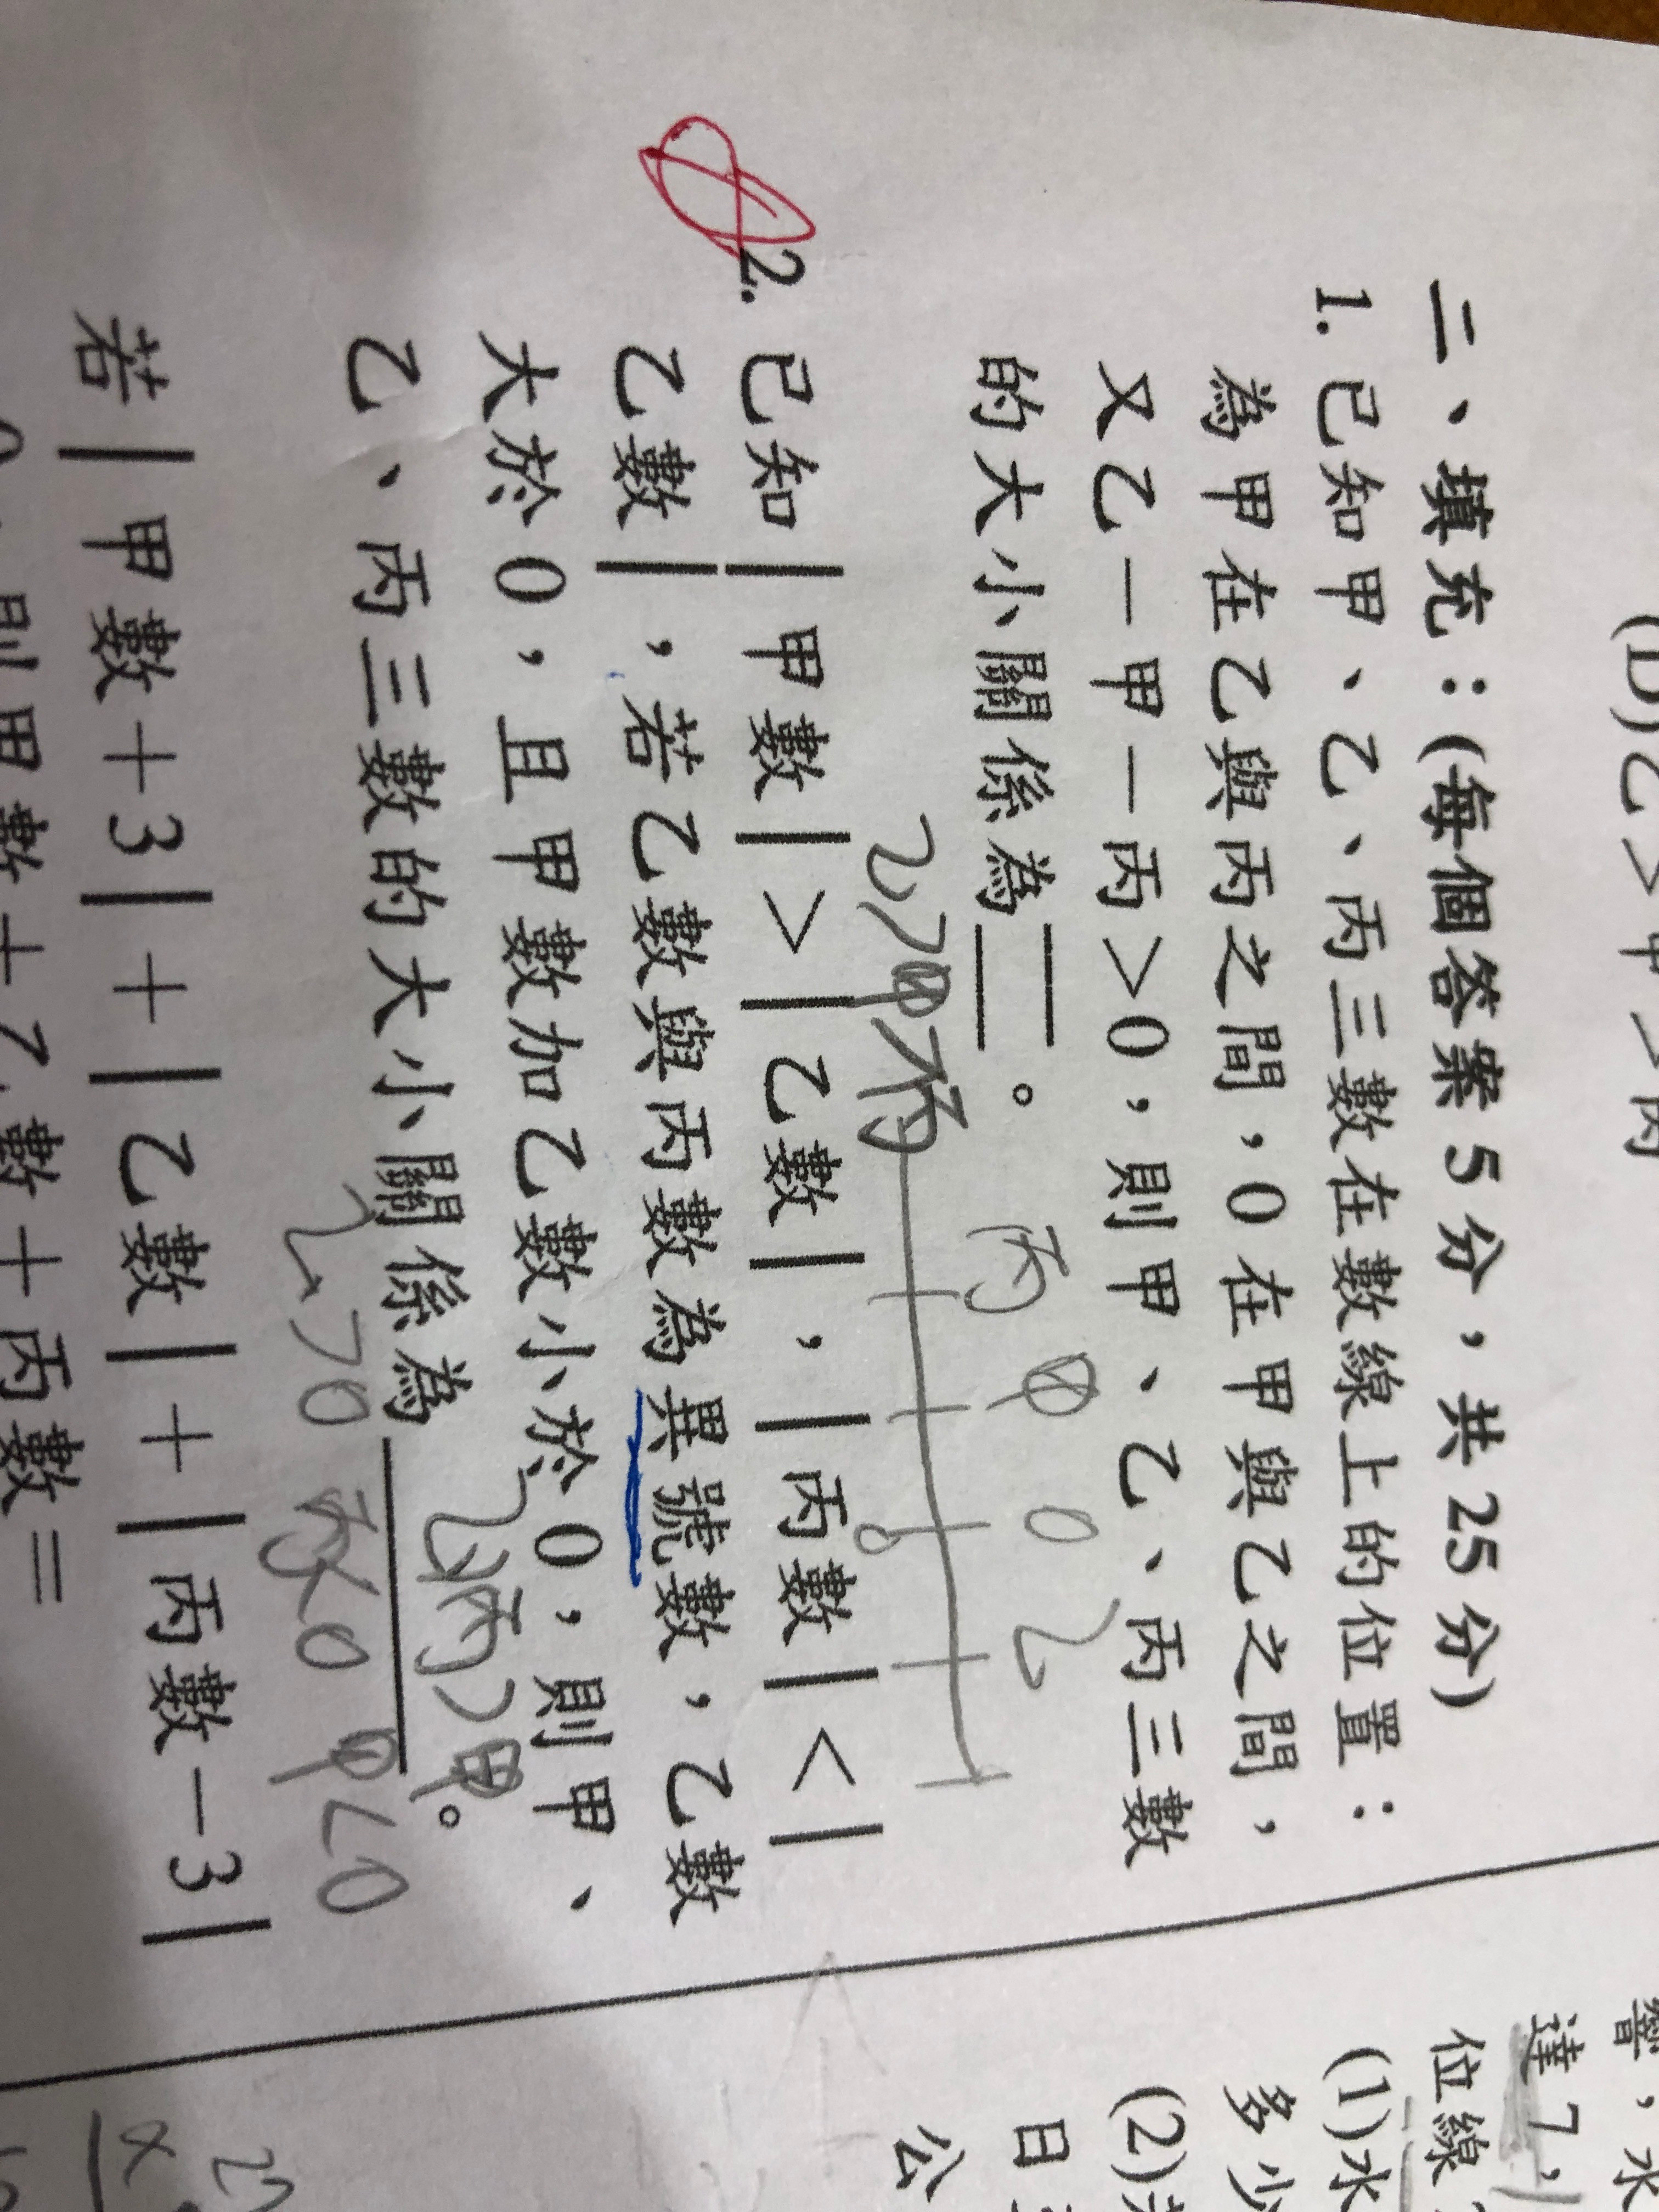 (D)乙>甲>丙
二、填充：(每個答案 5 分，共 25 分)
1. 已知甲、乙、丙三數在數線上的位置：
為甲在乙與丙之間，0 在甲與乙之間，
又乙－甲－丙>0，則甲、乙、丙三數
的大小關係為＿＿。
乙>甲>丙
丙 甲 0 乙
0
2. 已知｜甲數｜>｜乙數｜，｜丙數｜<｜
乙數｜，若乙數與丙數為異號數，乙數
大於 0，且甲數加乙數小於 0，則甲、
乙、丙三數的大小關係為＿＿。
乙>丙>甲
乙>0 丙<0 甲<0
若｜甲數＋3｜＋｜乙數｜＋｜丙數－3｜
則甲數＋乙數＋丙數＝
達 7，
位線
(1)水
多少
(2)
日
公